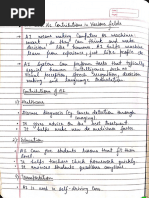 AI and its Contributions in Various fields
AI means making Computer or machines
smart so they can think and make
decisions like humans AI helps machines
learn from experience, just like people do.
AI System can perform tasks that typically
require human intelligence such as
visual perception speech recognition, decision
making and language translation
Contributions of AI
Healthcare
Disease diagnosis (eg cancer detection through
imaging)
It gives advice on the best treatment
It helps make new medicines faster
Education
AI can for students honest if their home
work.
It helps teachers check homework quickly.
It answers students problems anytime
Transportation
AI is used in self-driving cars.